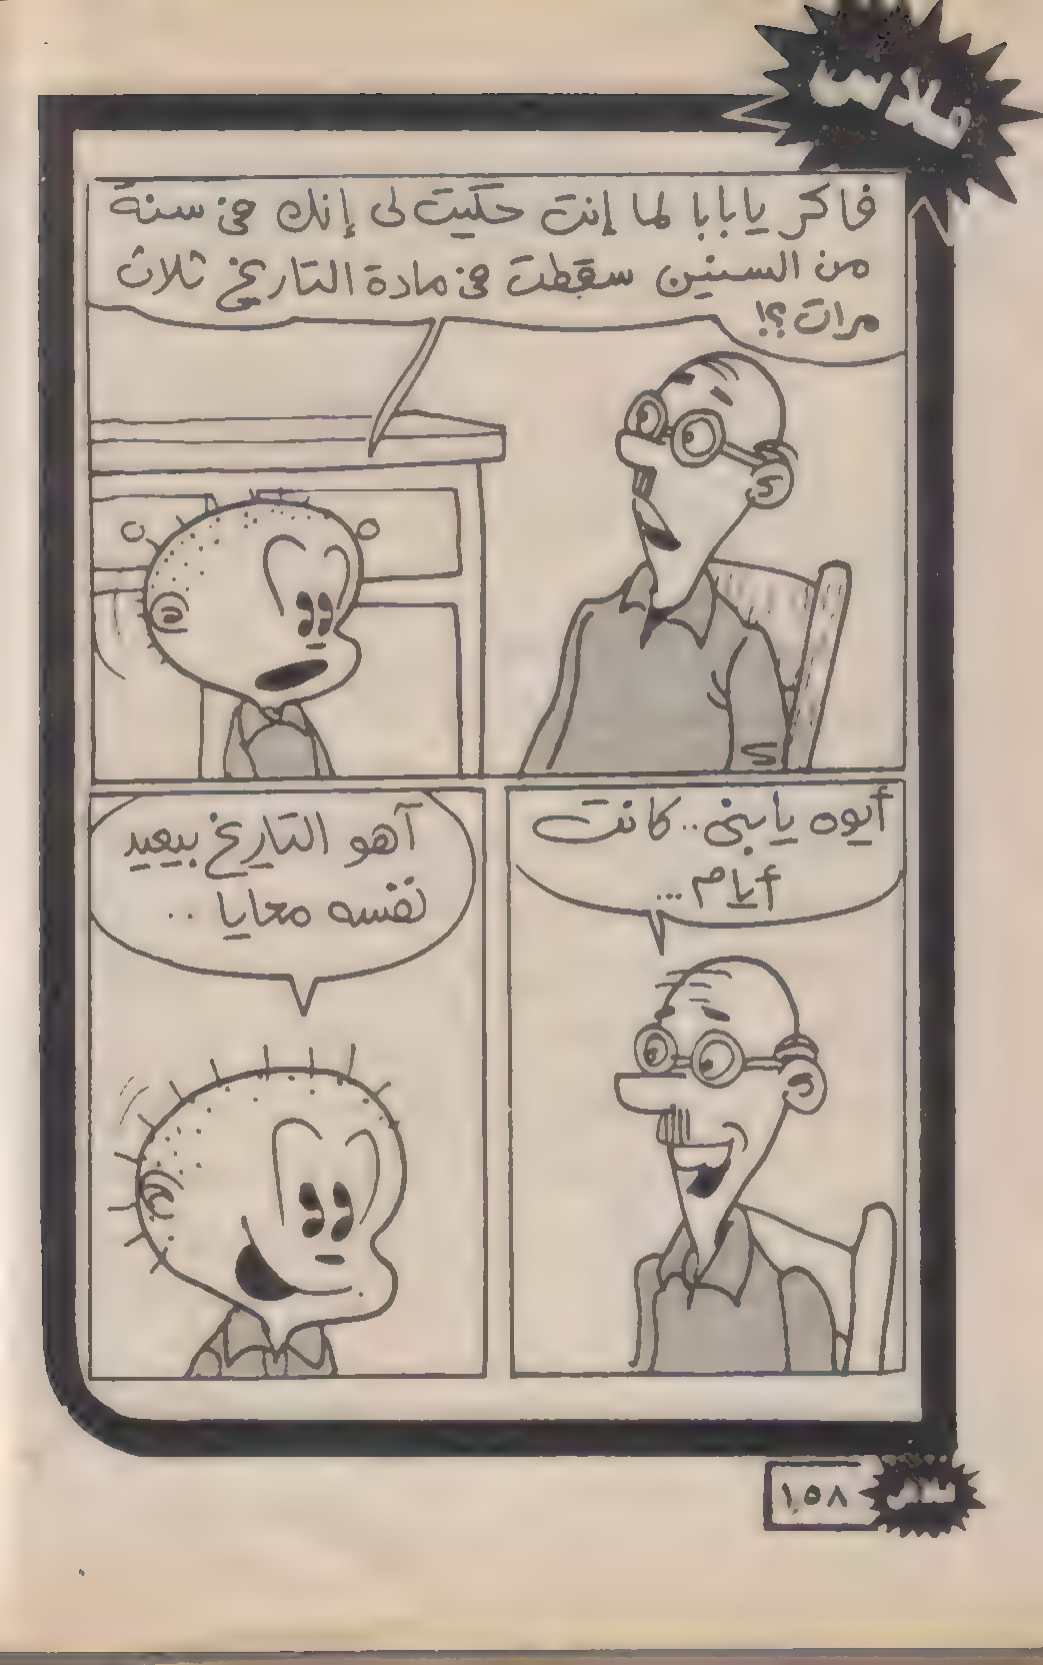 فلاش
فاكر يا بابا لما إنت حكيت لى إنك فى سنة
من السنين سقطت فى مادة التاريخ ثلاث
مرات؟!
أيوه يابنى.. كانت
أيام...
آهو التاريخ بيعيد
نفسه معايا ..
فلاش
١٥٨